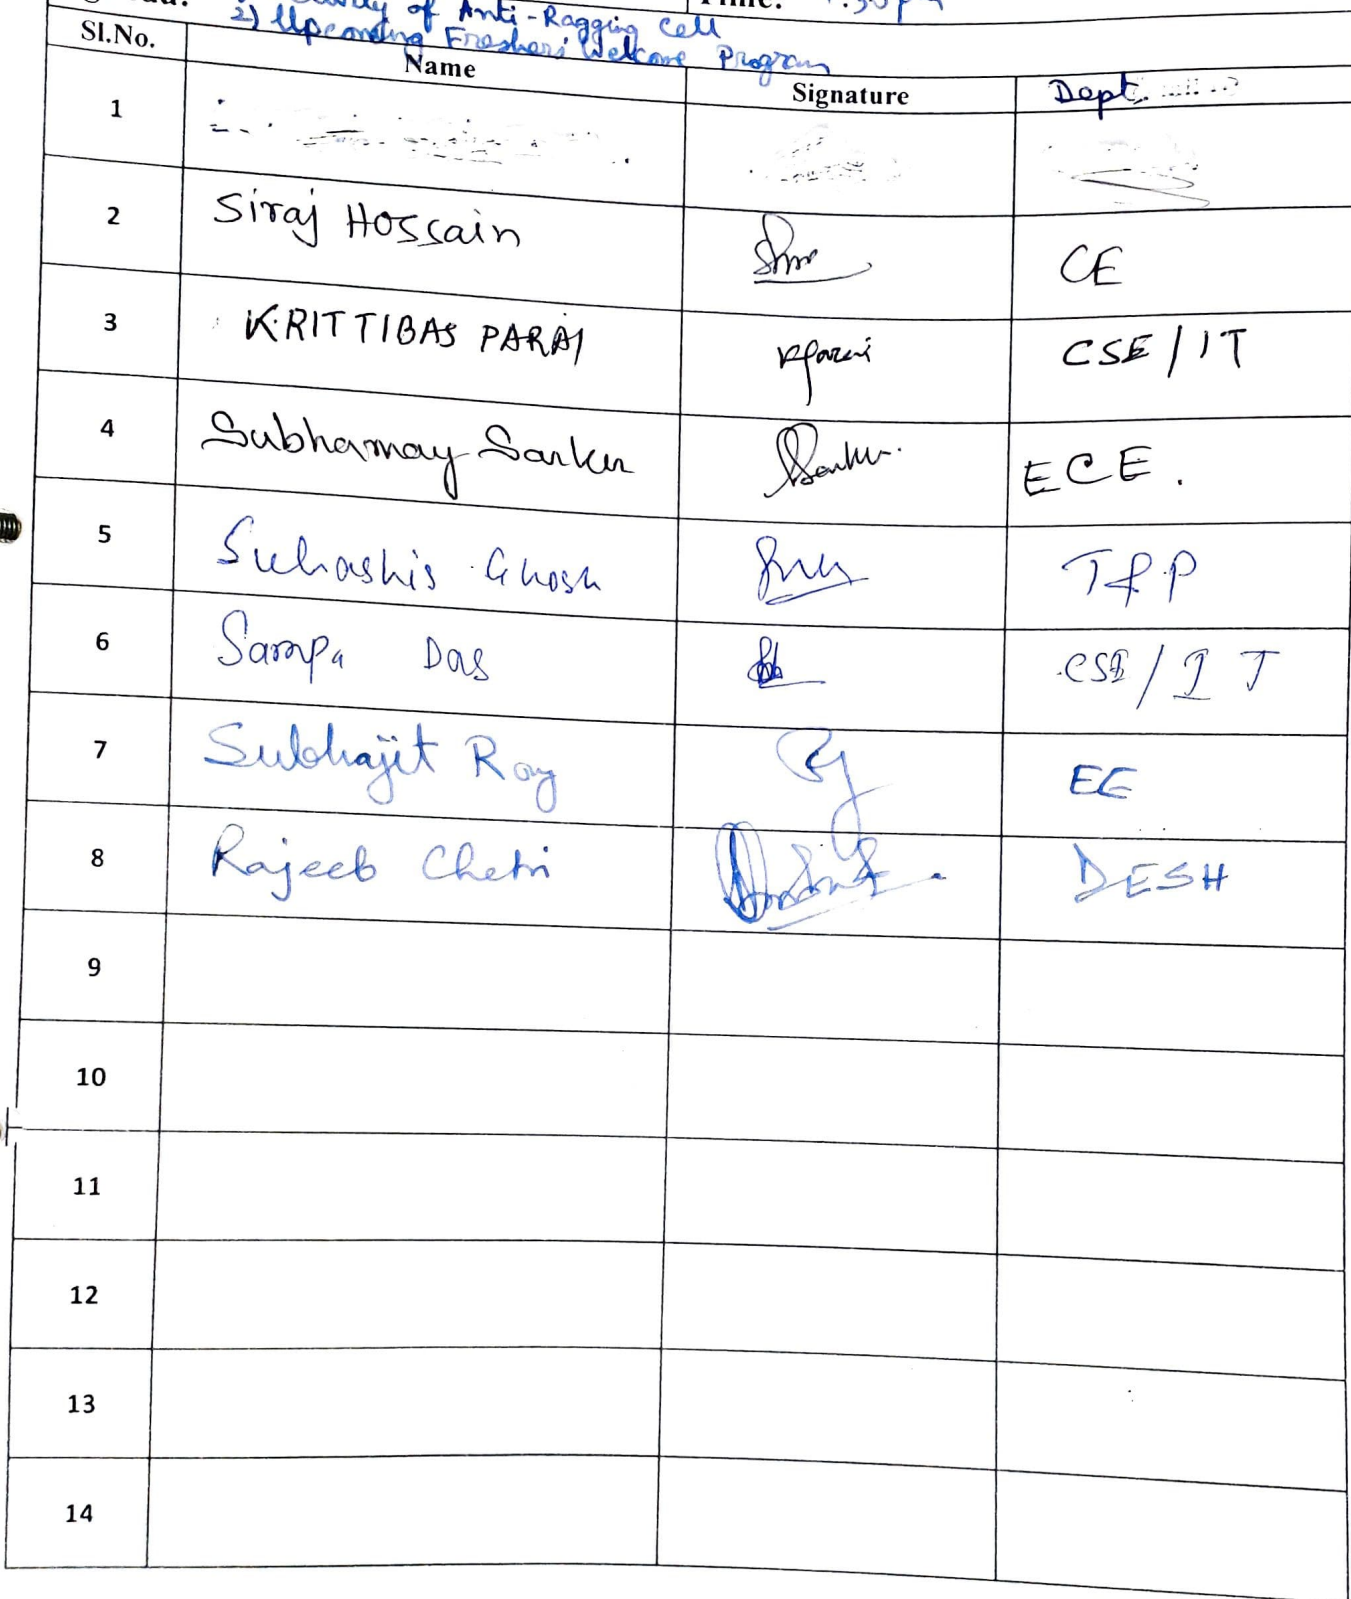 of Anti-Ragging Cell
2) Upcoming Freshers' Welcome Program
Sl.No. Name Signature Dept.
1
2 Siraj Hossain CE
3 KRITTIBAS PARAI CSE/IT
4 Subhamay Sarkar Sarkar. ECE.
5 Suhashis Ghosh T&P
6 Sampa Das CSE/IT
7 Subhajit Roy EE
8 Rajeeb Chetri DESH
9
10
11
12
13
14